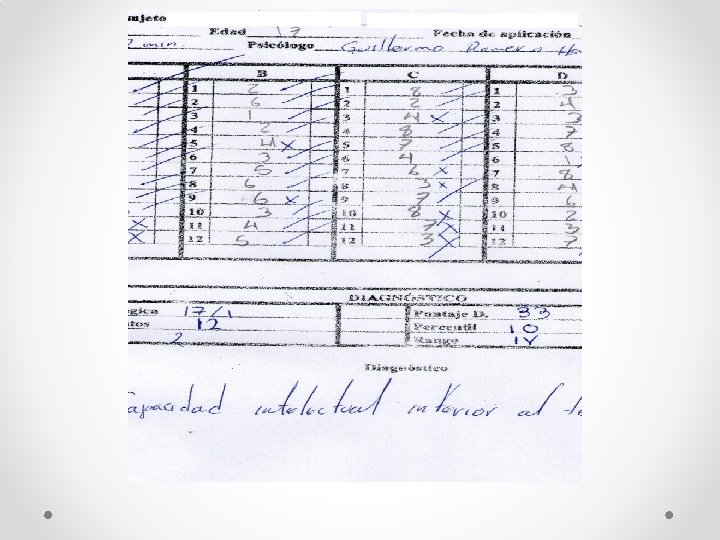 mjeto
Edad 17 Fecha de aplicación
2 min. Psicólogo Guillermo
B C D
1 2 1 8 1 3
2 6 2 2 2 4
3 1 3 4 x 3 3
4 2 4 8 4 7
5 4 x 5 7 5 8
6 3 6 4 6 1
7 5 7 6 x 7 8
8 6 8 3 x 8 4
9 6 x 9 7 9 6
10 3 10 8 x 10 2
x 11 4 11 7 x 11 3
x 12 5 12 3 x 12 7
DIAGNÓSTICO
gica 17/1 Puntaje D. 33
tos 12 Percentil 10
2 Rango IV
Diagnóstico
apacidad intelectual inferior al te